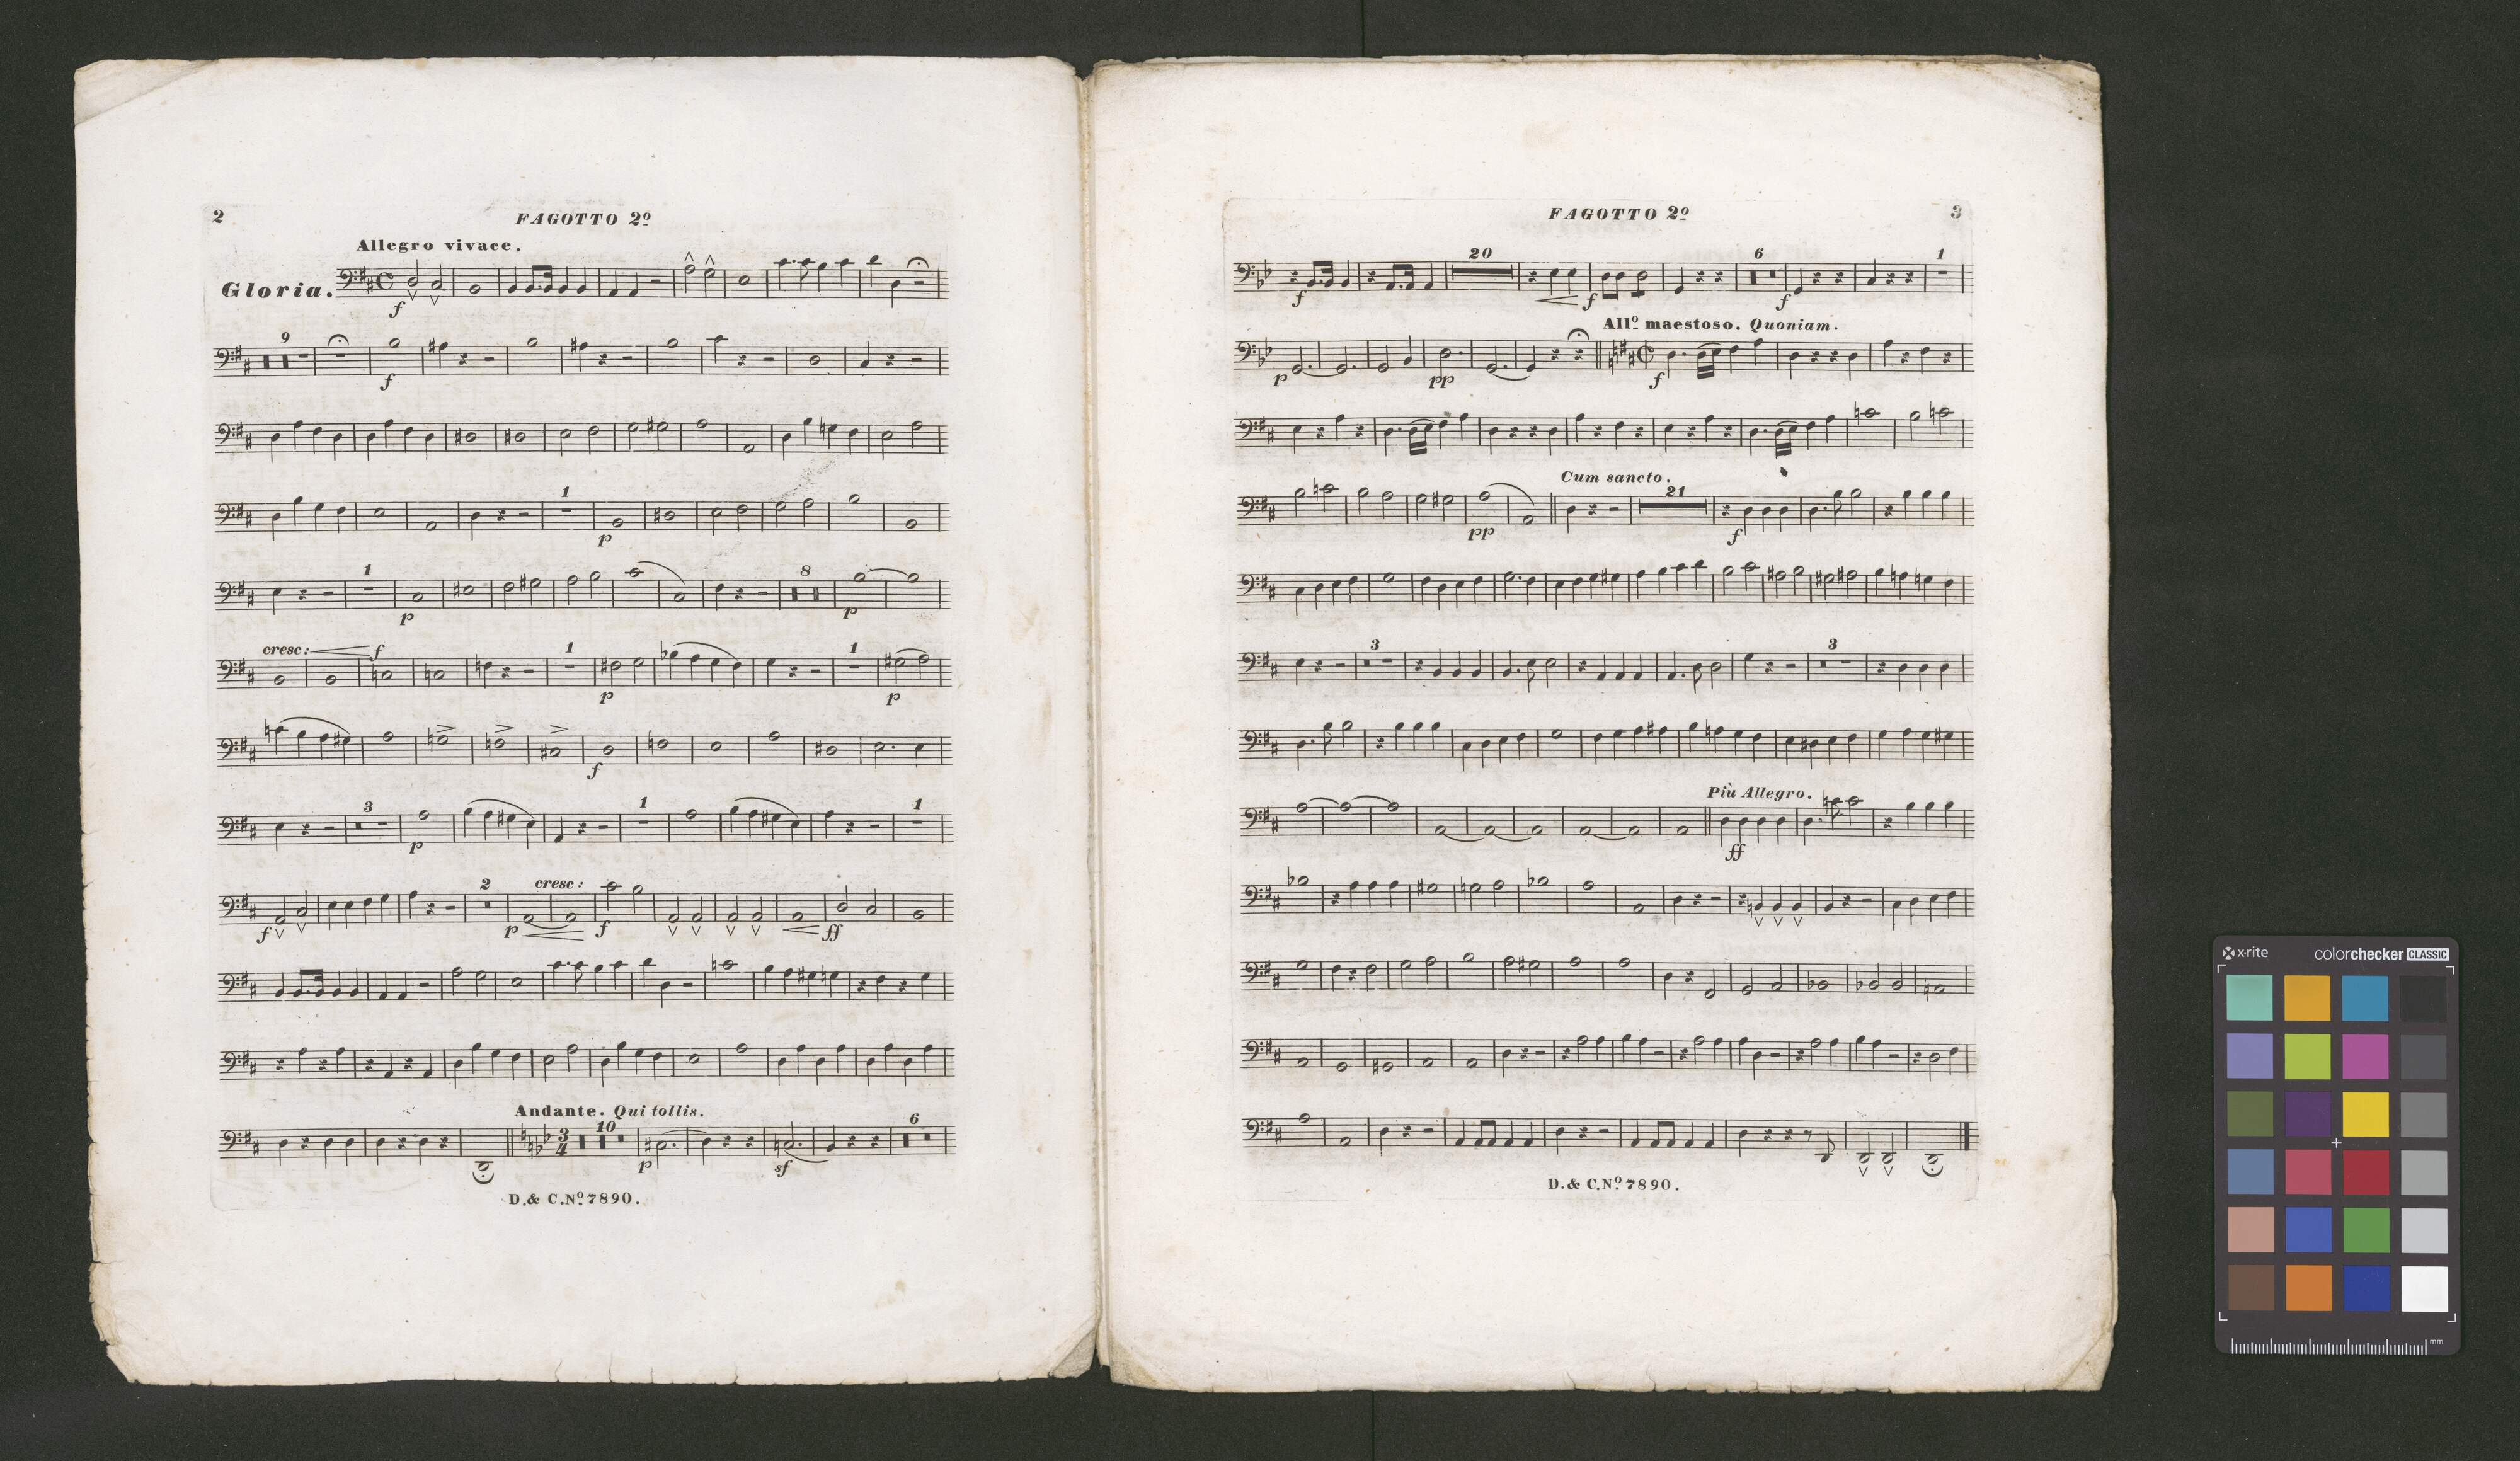 2
FAGOTTO 2º
Allegro vivace.
Gloria.
f
9
f
1
p
1
8
p
p
cresc: f
1
1
p
p
f
3
1
1
p
2
cresc:
f
p
f
ff
Andante. Qui tollis.
3
4
10
6
p
sf
D.& C.Nº 7890.
FAGOTTO 2º
3
20
6
1
f
f
f
Allº maestoso. Quoniam.
p
pp
f
Cum sancto.
21
pp
f
3
3
Più Allegro.
ff
D.& C.Nº 7890.
x-rite
colorchecker CLASSIC
mm